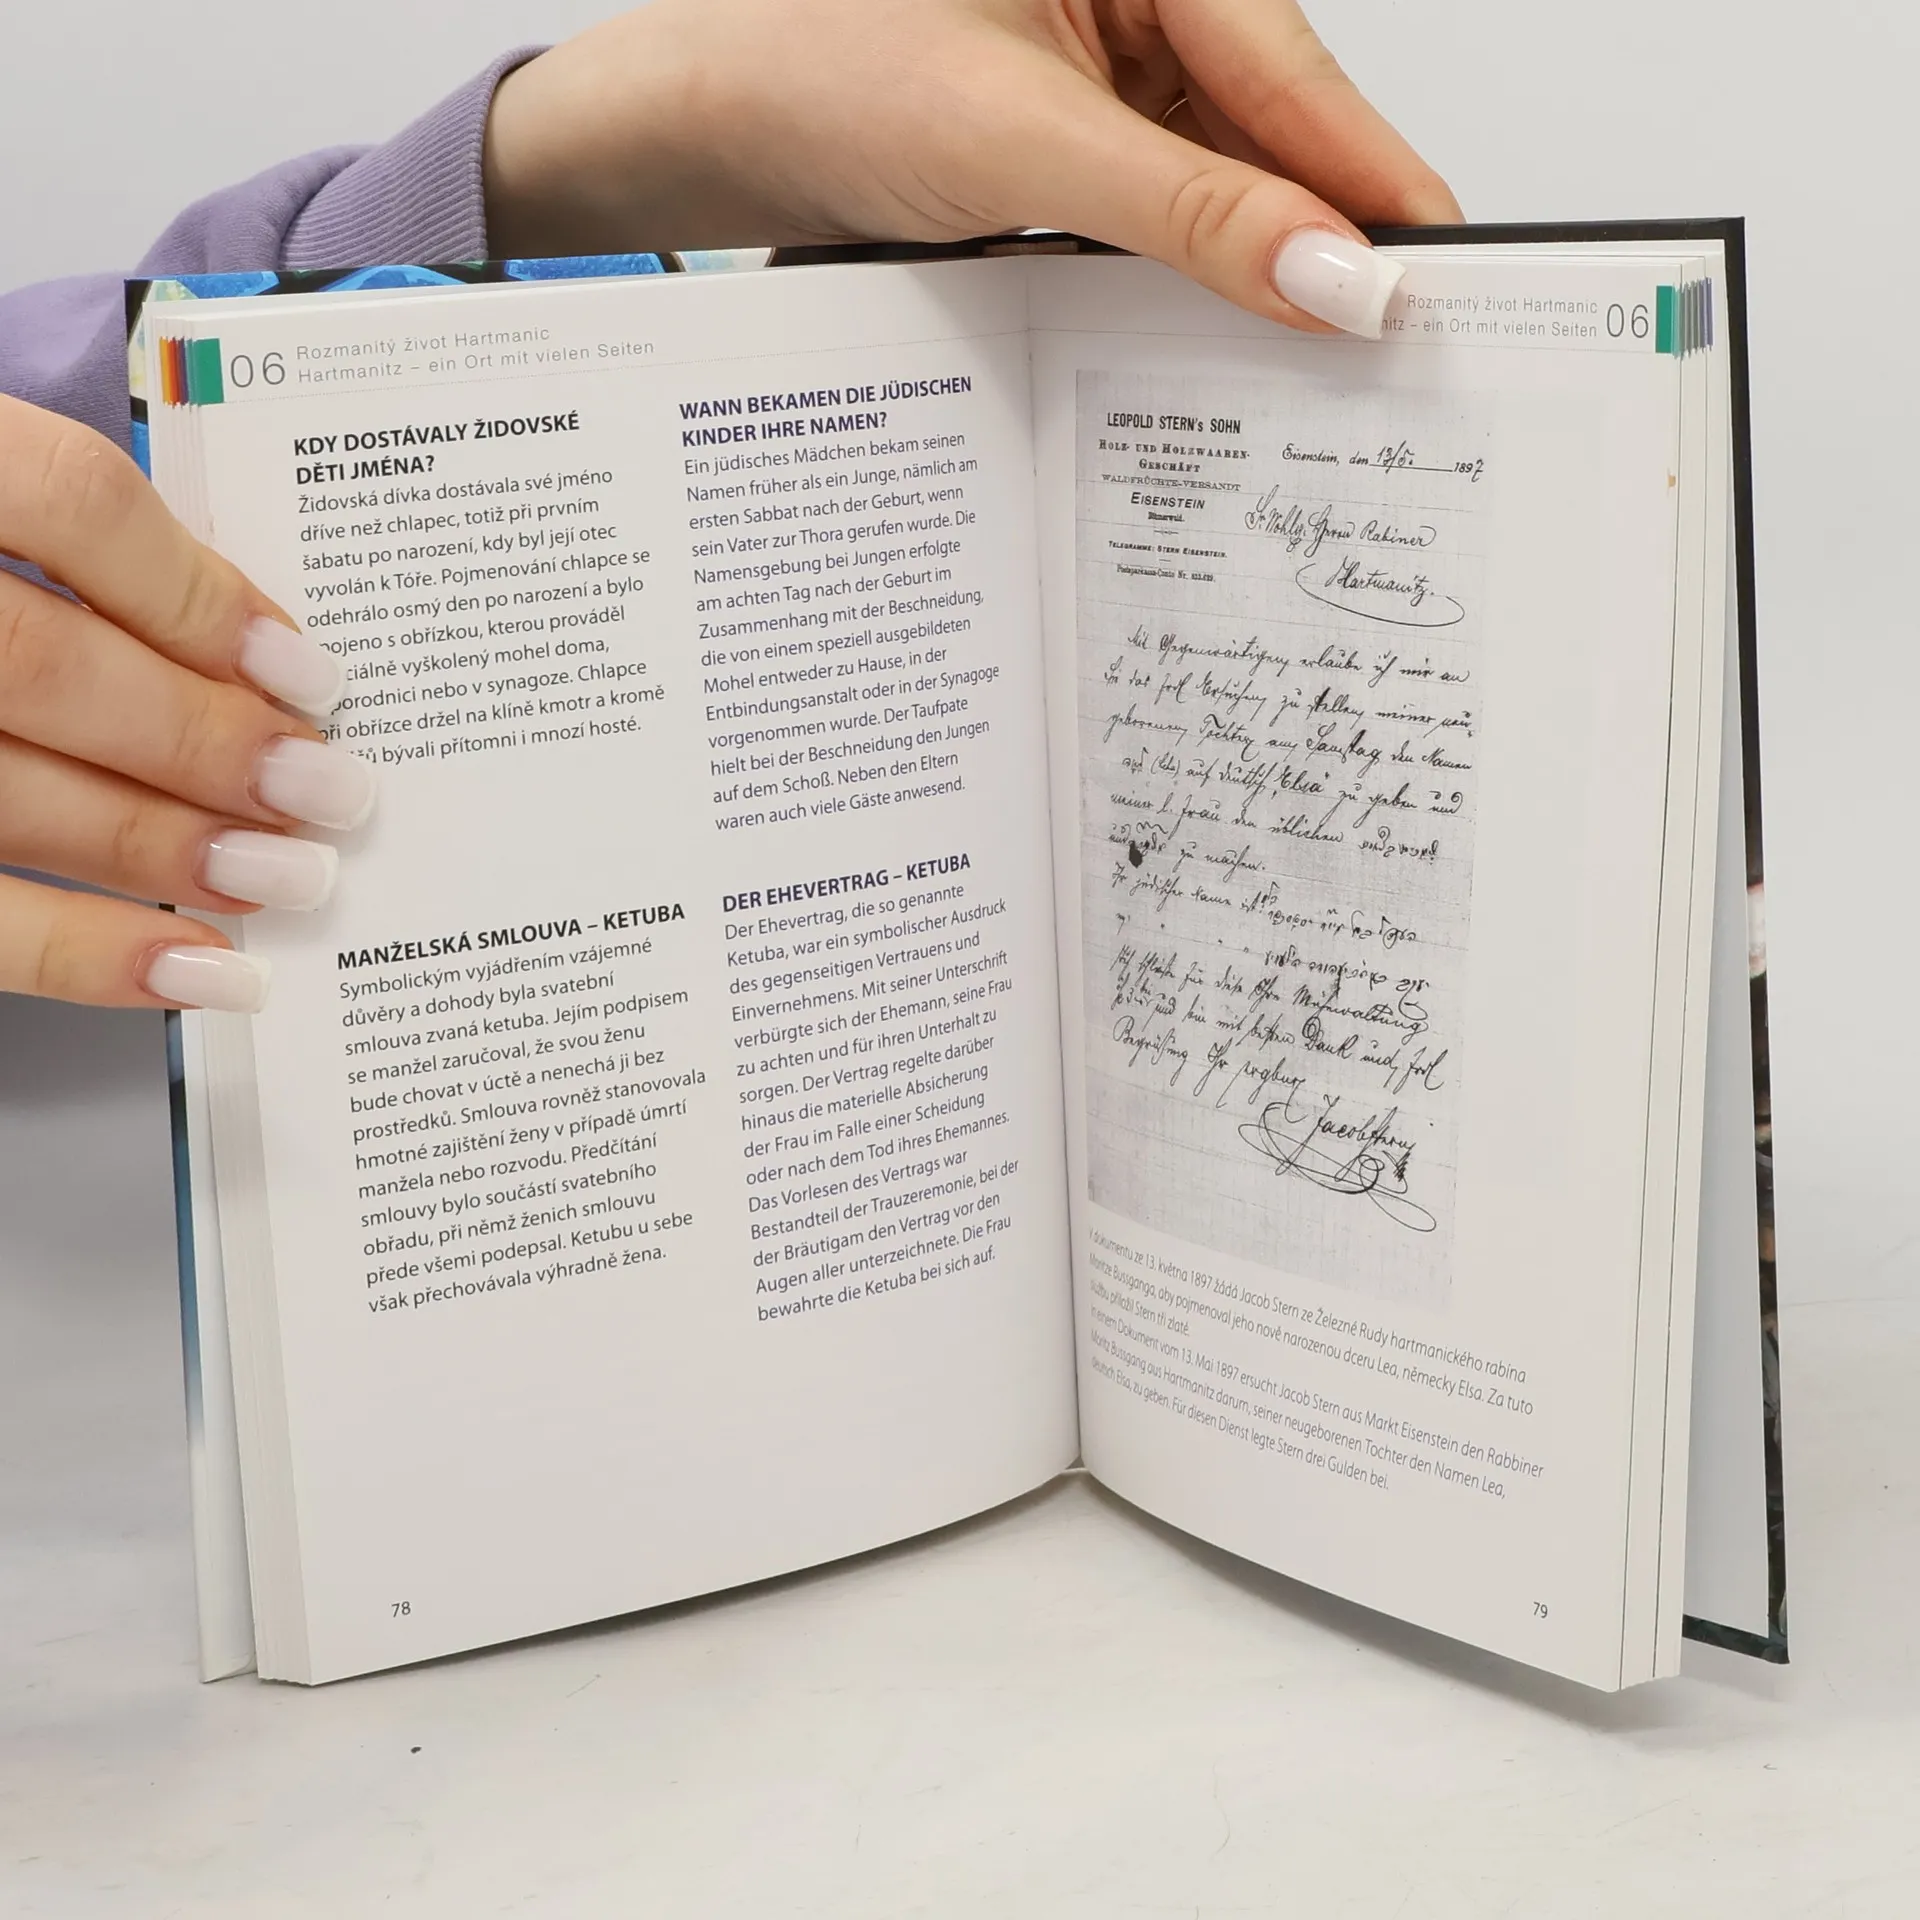 06 Rozmanitý život Hartmanic
Hartmanitz – ein Ort mit vielen Seiten
KDY DOSTÁVALY ŽIDOVSKÉ
DĚTI JMÉNA?
Židovská dívka dostávala své jméno
dříve než chlapec, totiž při prvním
šabatu po narození, kdy byl její otec
vyvolán k Tóře. Pojmenování chlapce se
odehrálo osmý den po narození a bylo
pojeno s obřízkou, kterou prováděl
ciálně vyškolený mohel doma,
porodnici nebo v synagoze. Chlapce
při obřízce držel na klíně kmotr a kromě
bývali přítomni i mnozí hosté.
MANŽELSKÁ SMLOUVA – KETUBA
Symbolickým vyjádřením vzájemné
důvěry a dohody byla svatební
smlouva zvaná ketuba. Jejím podpisem
se manžel zaručoval, že svou ženu
bude chovat v úctě a nenechá ji bez
prostředků. Smlouva rovněž stanovovala
hmotné zajištění ženy v případě úmrtí
manžela nebo rozvodu. Předčítání
smlouvy bylo součástí svatebního
obřadu, při němž ženich smlouvu
přede všemi podepsal. Ketubu u sebe
však přechovávala výhradně žena.
WANN BEKAMEN DIE JÜDISCHEN
KINDER IHRE NAMEN?
Ein jüdisches Mädchen bekam seinen
Namen früher als ein Junge, nämlich am
ersten Sabbat nach der Geburt, wenn
sein Vater zur Thora gerufen wurde. Die
Namensgebung bei Jungen erfolgte
am achten Tag nach der Geburt im
Zusammenhang mit der Beschneidung,
die von einem speziell ausgebildeten
Mohel entweder zu Hause, in der
Entbindungsanstalt oder in der Synagoge
vorgenommen wurde. Der Taufpate
hielt bei der Beschneidung den Jungen
auf dem Schoß. Neben den Eltern
waren auch viele Gäste anwesend.
DER EHEVERTRAG – KETUBA
Der Ehevertrag, die so genannte
Ketuba, war ein symbolischer Ausdruck
des gegenseitigen Vertrauens und
Einvernehmens. Mit seiner Unterschrift
verbürgte sich der Ehemann, seine Frau
zu achten und für ihren Unterhalt zu
sorgen. Der Vertrag regelte darüber
hinaus die materielle Absicherung
der Frau im Falle einer Scheidung
oder nach dem Tod ihres Ehemannes.
Das Vorlesen des Vertrags war
Bestandteil der Trauzeremonie, bei der
der Bräutigam den Vertrag vor den
Augen aller unterzeichnete. Die Frau
bewahrte die Ketuba bei sich auf.
78
Rozmanitý život Hartmanic
nitz – ein Ort mit vielen Seiten 06
LEOPOLD STERN's SOHN
HOLZ- UND HOLZWAAREN-
GESCHÄFT
WALDFRÜCHTE-VERSANDT
EISENSTEIN
Böhmerwald.
TELEGRAMME: STERN EISENSTEIN.
Postsparkassa-Conto Nr.
Eisenstein, den 13/5. 1897
Herrn Rabiner
Hartmanitz.
Mit Gegenwärtigen erlaube ich mir an
Sie das Ersuchen zu stellen meiner neu-
geborenen Tochter am Samstag den Namen
(Lea) auf deutsch „Elsa" zu geben und
meiner l. Frau den üblichen
zu machen.
Ihr jüdischer Name ist
für diese Ihre Mühewaltung
und bin mit besten Dank und
Begrüßung Ihr
Jacob Stern
V dokumentu ze 13. května 1897 žádá Jacob Stern ze Železné Rudy hartmanického rabína
Moritze Bussganga, aby pojmenoval jeho nově narozenou dceru Lea, německy Elsa. Za tuto
službu přiložil Stern tři zlaté.
In einem Dokument vom 13. Mai 1897 ersucht Jacob Stern aus Markt Eisenstein den Rabbiner
Moritz Bussgang aus Hartmanitz darum, seiner neugeborenen Tochter den Namen Lea,
deutsch Elsa, zu geben. Für diesen Dienst legte Stern drei Gulden bei.
79